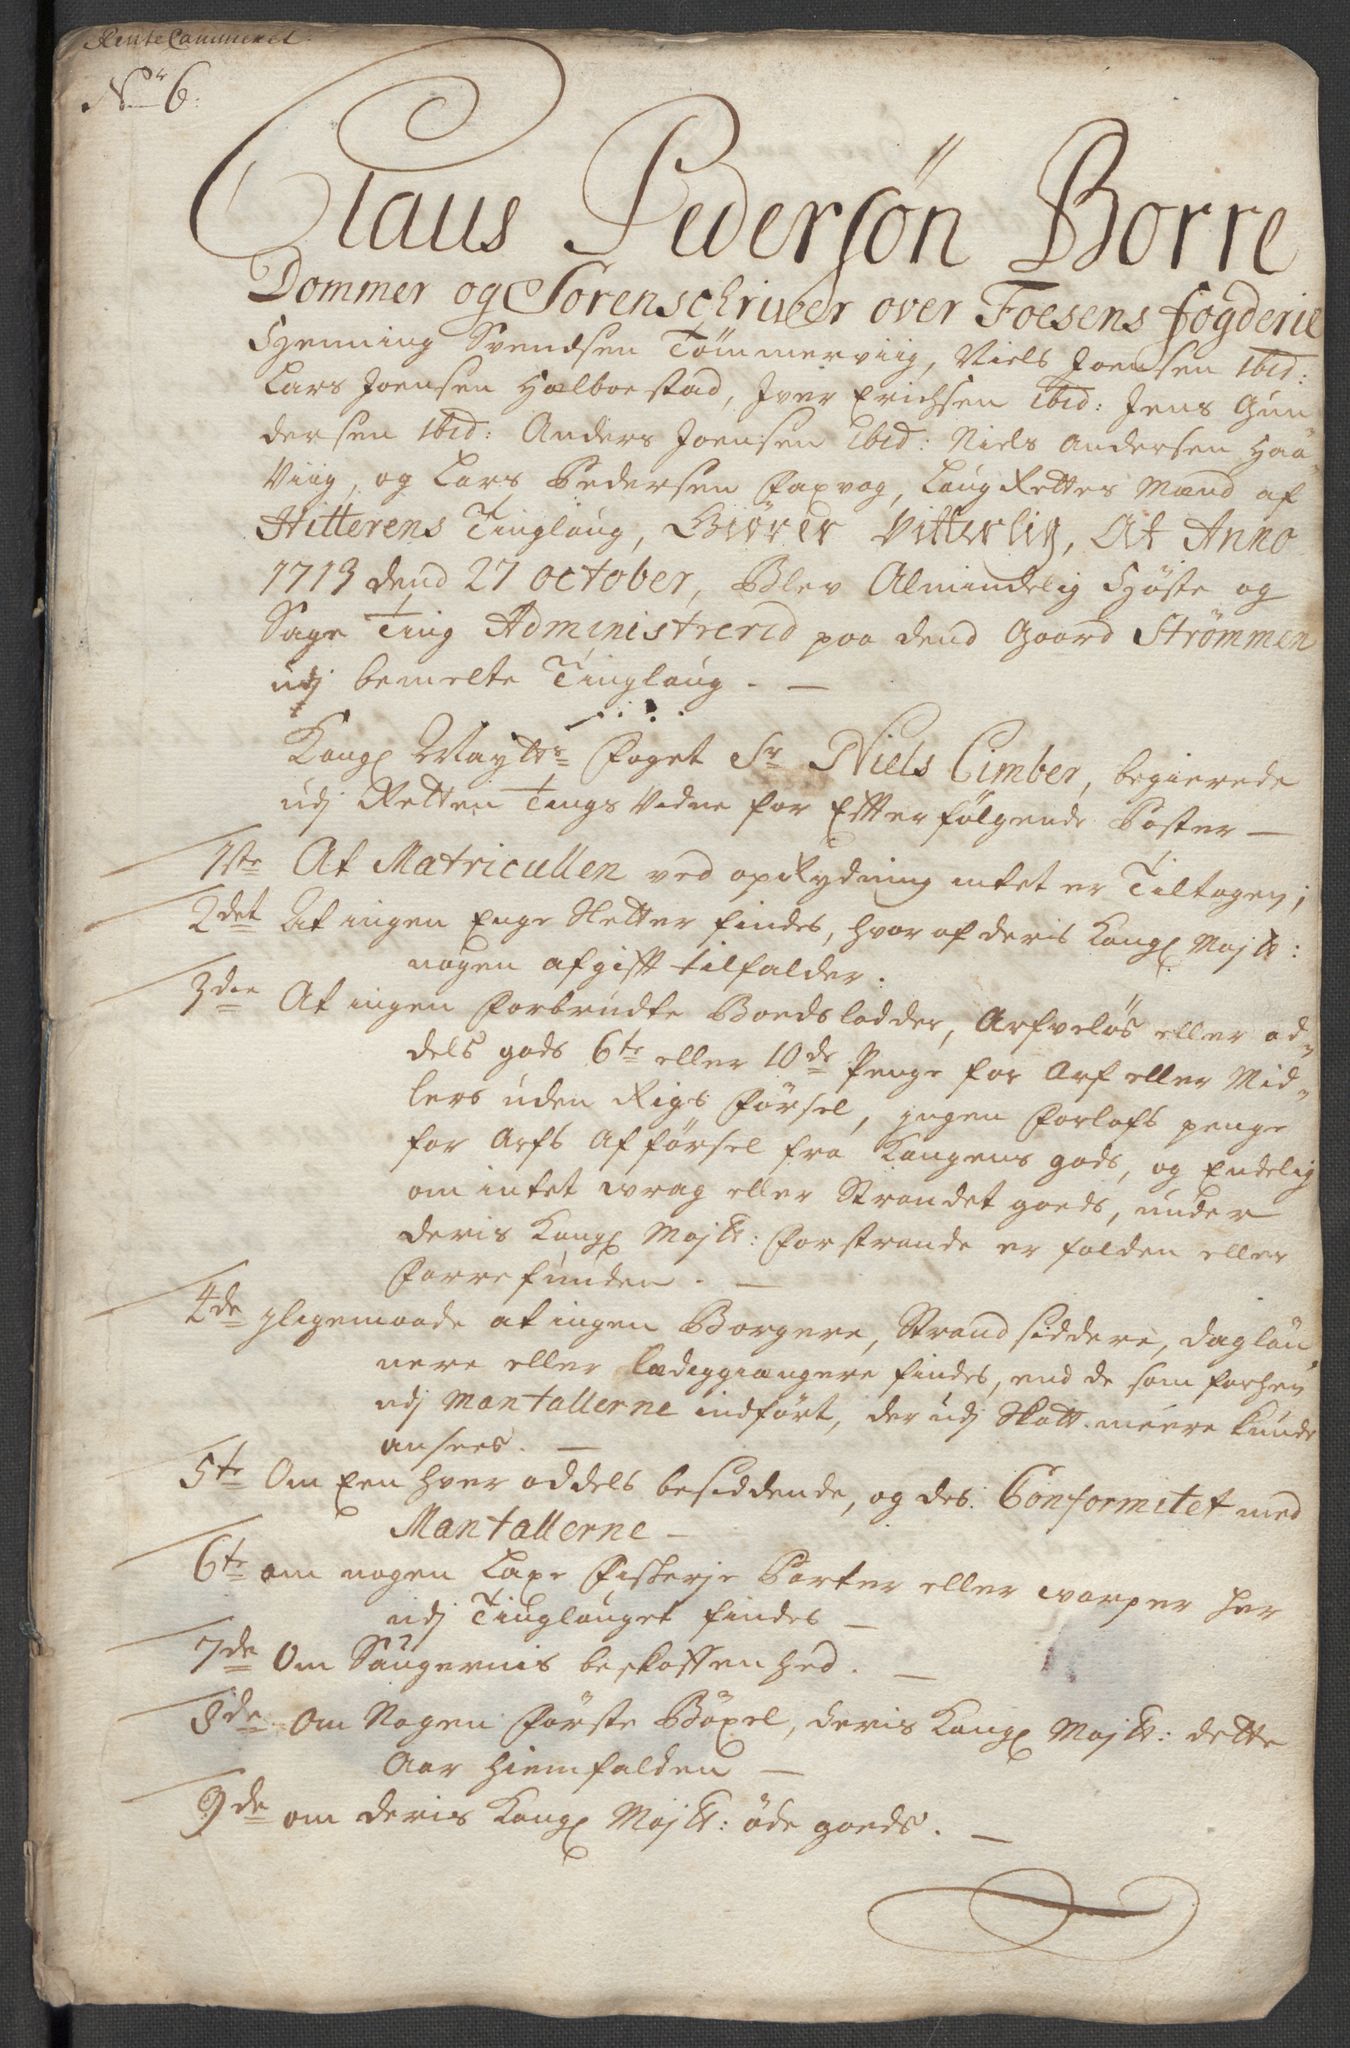 RenteCammeret.
No 6.
Claus Pedersøn Borre
Dommer og Sorenschriver over Foesens fogderie
Hemming Svendsen Tømmerviig, Niels Joensen ibid:
Lars Joensen Hælboestad, Iver Erichsen ibid: Jens Gun
dersen ibid: Anders Joensen ibid: Niels Andersen Haa-
Viig, og Lars Pedersen Faxvog, LaugRettes Mænd af
Hitterens Tinglaug, Giører Vitterlig, At Anno
1713 dend 27 October, Blev Almindelig Høste og
Sage Ting Administrerid paa dend Gaard Strømmen
udj bemelte Tinglaug. —
Kongl Mayttz Foget Sr Niels Cimber, begierede
udj Retten Tings Vidne for Effterfølgende Poster —
1ste At Matricullen ved opRydning intet er Tiltagen;
2det At ingen Enge Sletter findes, hvor af deris Kongl Majtt:
nogen afgifft tilfalder.
3die At ingen Forbrudte Boedslodder, Arfveløs eller od-
dels gods 6te eller 10de Penge for Arf eller Mid-
lers uden Rigs Førsel, jngen Forlofs penge
for Arfs Afførsel fra Kongens gods, og Endelig
om intet wrag eller Strandet goeds, under
deris Kongl Majtt: Forstrande er falden eller
Forrefunden. —
4de jligemaade at ingen Borgere, Strandsiddere, dagløn
nere eller lædiggiængere findes, end de som forhen
udj Mantallerne indført, der udj Skatt meere kunde
ansees. —
5te Om Een hver oddels besiddende, og des Conformitet med
Mantallerne —
6te om nogen Laxe Fiskerje Parter eller warper her
udj Tinglauget findes —
7de Om Saugernis beskaffenhed. —
8de Om Nogen Første Bøxel, deris Kongl Majtt: dette
Aar hiemfalden —
9de om deris Kongl Majtt: øde goeds. —